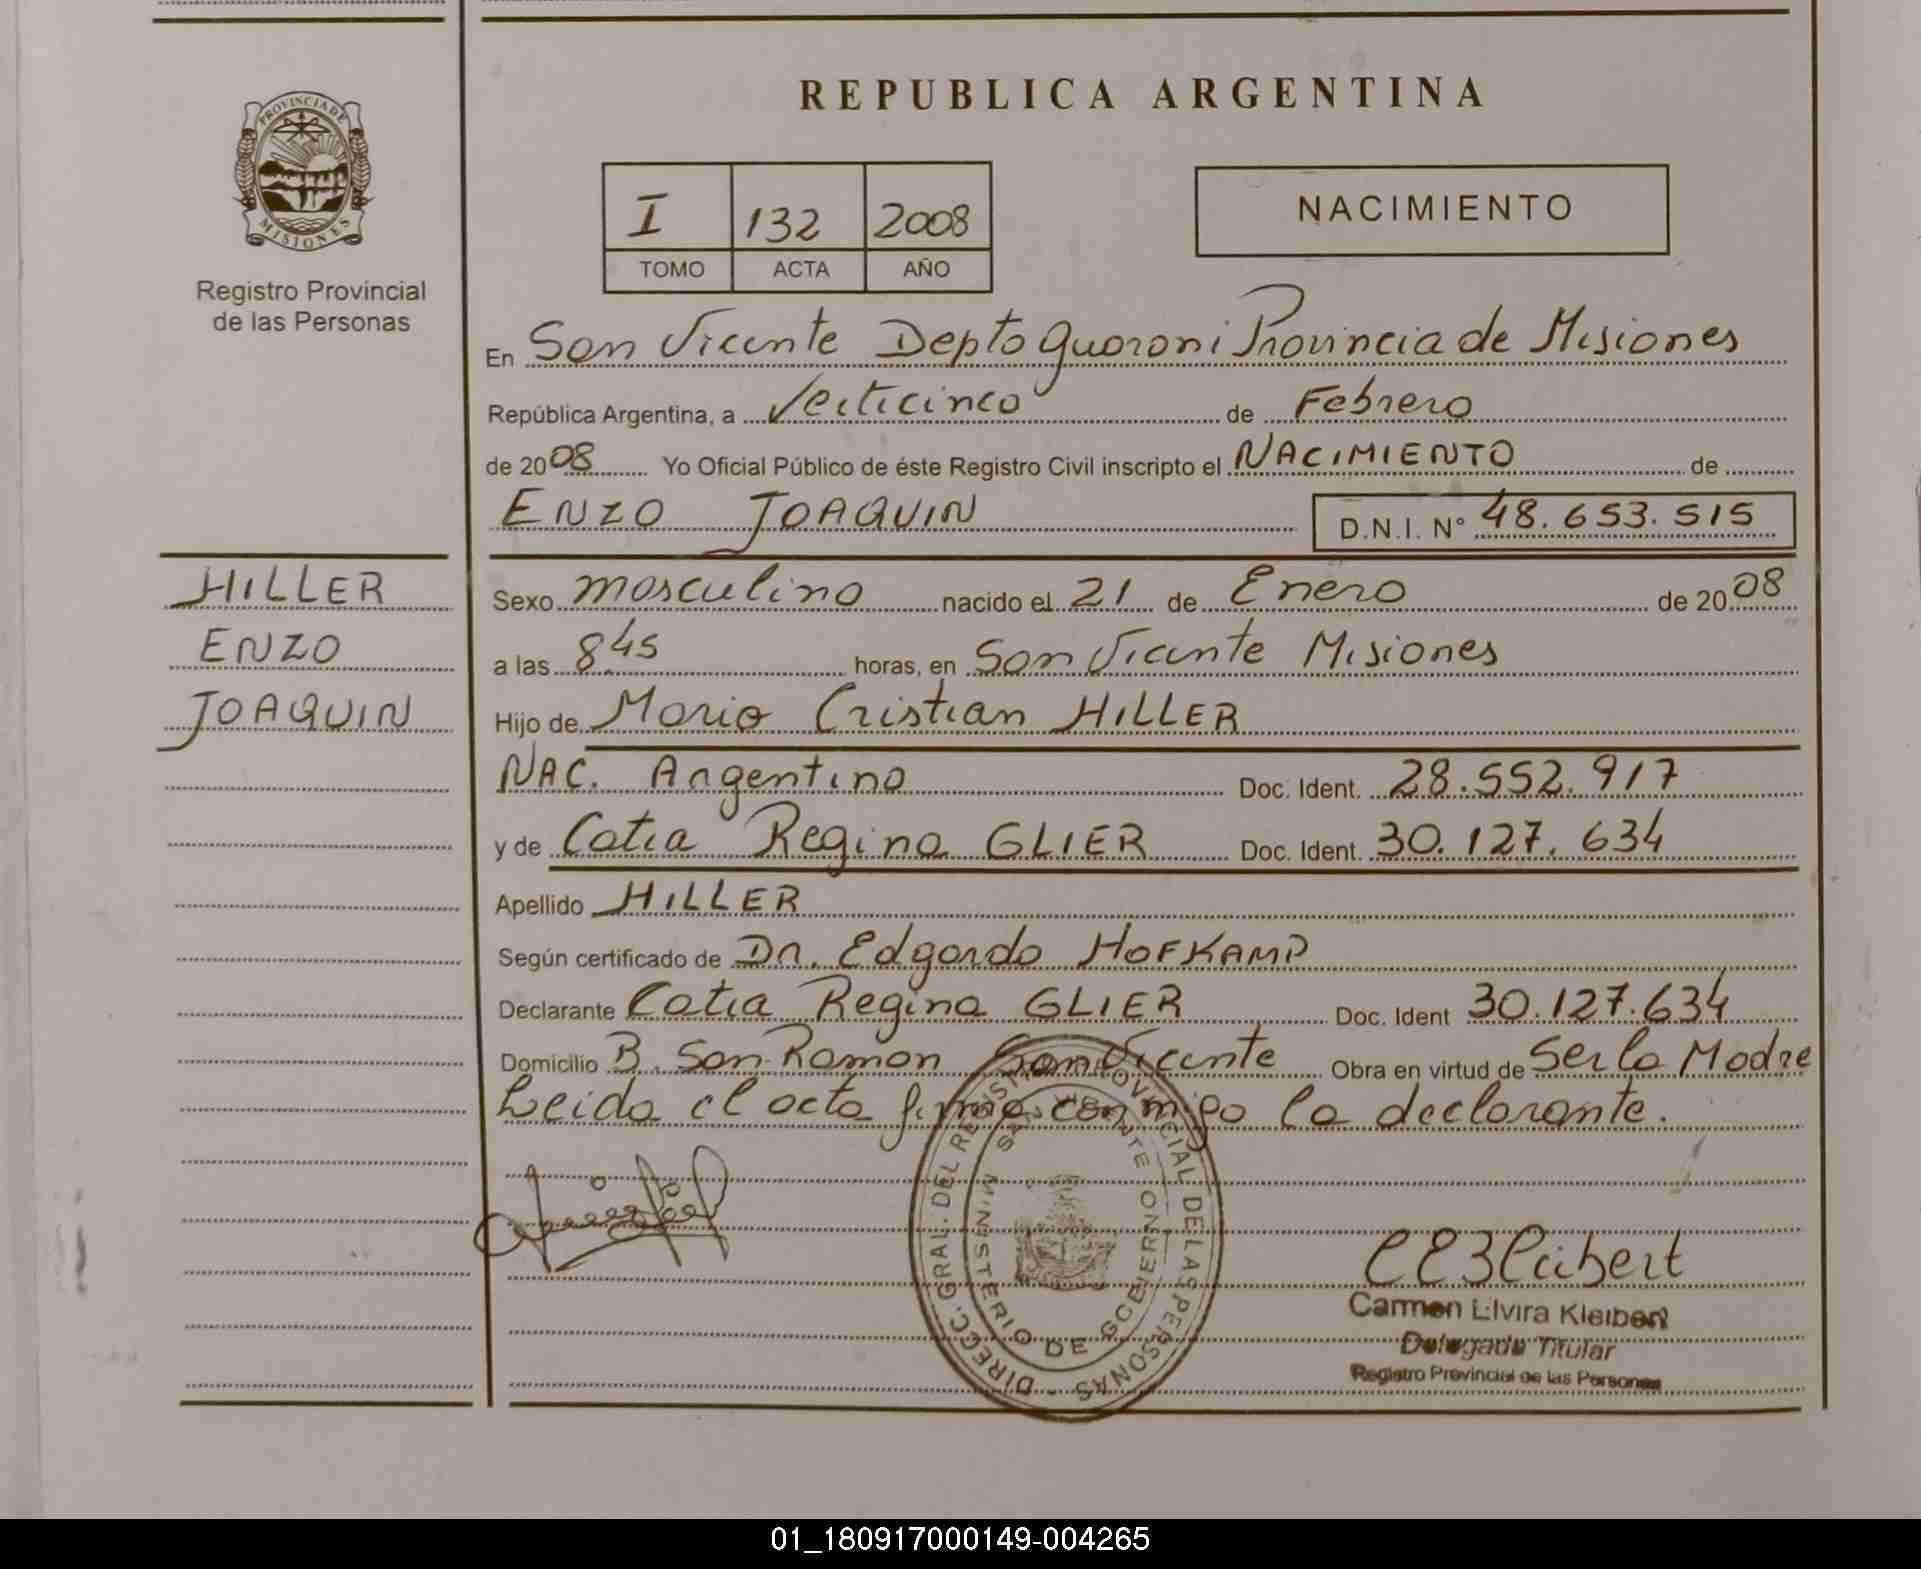 REPUBLICA ARGENTINA
PROVINCIA DE
MISIONES
Registro Provincial
de las Personas
I 132 2008
TOMO ACTA AÑO
NACIMIENTO
En San Vicente Depto Guaroni Provincia de Misiones
República Argentina, a Veiticinco de Febrero
de 2008 Yo Oficial Público de éste Registro Civil inscripto el NACIMIENTO de
ENZO JOAQUIN D.N.I. N° 48.653.515
HILLER
ENZO
JOAQUIN
Sexo masculino nacido el 21 de Enero de 2008
a las 8 45 horas, en San Vicente Misiones
Hijo de Mario Cristian HILLER
NAC. Argentino Doc. Ident. 28.552.917
y de Catia Regina GLIER Doc. Ident. 30.127.634
Apellido HILLER
Según certificado de Dr. Edgardo HOFKAMP
Declarante Catia Regina GLIER Doc. Ident 30.127.634
Domicilio B. San Ramon San Vicente Obra en virtud de Ser la Madre
Leida el acta firma conmigo la declarante.
DIREC. GRAL. DEL REGISTRO PROVINCIAL DE LAS PERSONAS -
SAN VICENTE
MINISTERIO DE GOBIERNO
Carmen Elvira Kleibert
Delegada Titular
Registro Provincial de las Personas
01_180917000149-004265